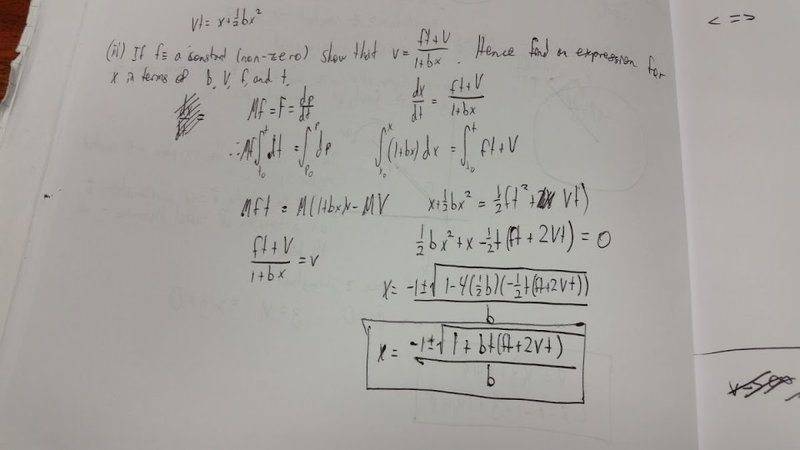 Vt = x+½bx²
<=>
(ii) If f is a constant (non-zero) show that v = (ft+V)/(1+bx). Hence find an expression for
x in terms of b, V, f, and t.
Mf = F = dp/dt
dx/dt = (ft+V)/(1+bx)
∴ Mf∫dt = ∫dp
∫(1+bx)dx = ∫ft+V
Mft = M(1+bx)v - MV
x+½bx² = ½ft² + Vt
(ft+V)/(1+bx) = v
½bx²+x-½t(ft+2Vt) = 0
x = (-1±√(1-4(½b)(-½t(ft+2Vt))))/b
x = (-1±√(1+bt(ft+2Vt)))/b